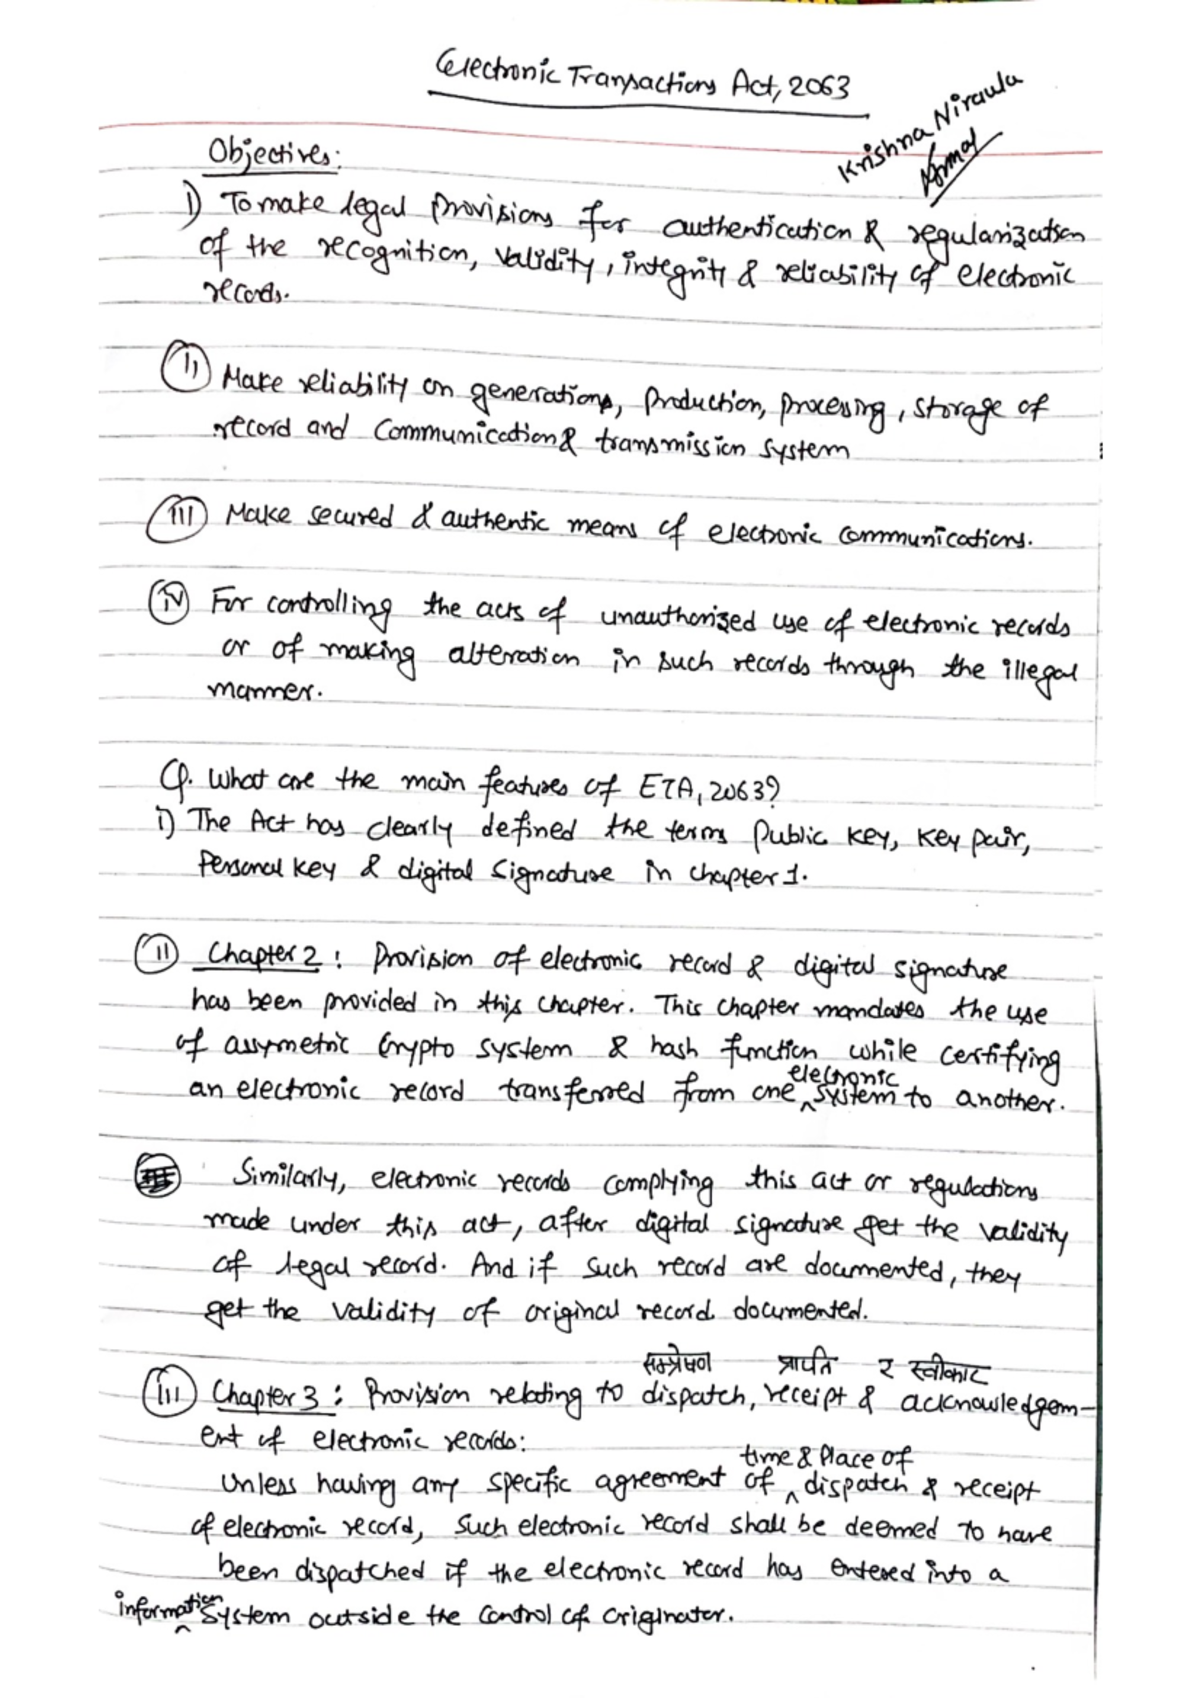 Electronic Transactions Act, 2063
Krishna Niraula
Objectives:
i) To make legal provisions for authentication & regularization
of the recognition, validity, integrity & reliability of electronic
records.
ii) Make reliability on generations, production, processing, storage of
record and communication & transmission system
iii) Make secured & authentic means of electronic communications.
iv) For controlling the acts of unauthorized use of electronic records
or of making alteration in such records through the illegal
manner.
Q. What are the main features of ETA, 2063?
i) The Act has clearly defined the terms public key, key pair,
personal key & digital signature in chapter 1.
ii) Chapter 2: Provision of electronic record & digital signature
has been provided in this chapter. This chapter mandates the use
of assymetric crypto system & hash function while certifying
an electronic record transferred from one electronic system to another.
Similarly, electronic records complying this act or regulations
made under this act, after digital signature get the validity
of legal record. And if such record are documented, they
get the validity of original record documented.
सम्प्रेषण प्राप्ति र स्वीकार
iii) Chapter 3: Provision relating to dispatch, receipt & acknowledgem-
ent of electronic records:
Unless having any specific agreement of time & place of dispatch & receipt
of electronic record, such electronic record shall be deemed to have
been dispatched if the electronic record has entered into a
information system outside the control of originator.